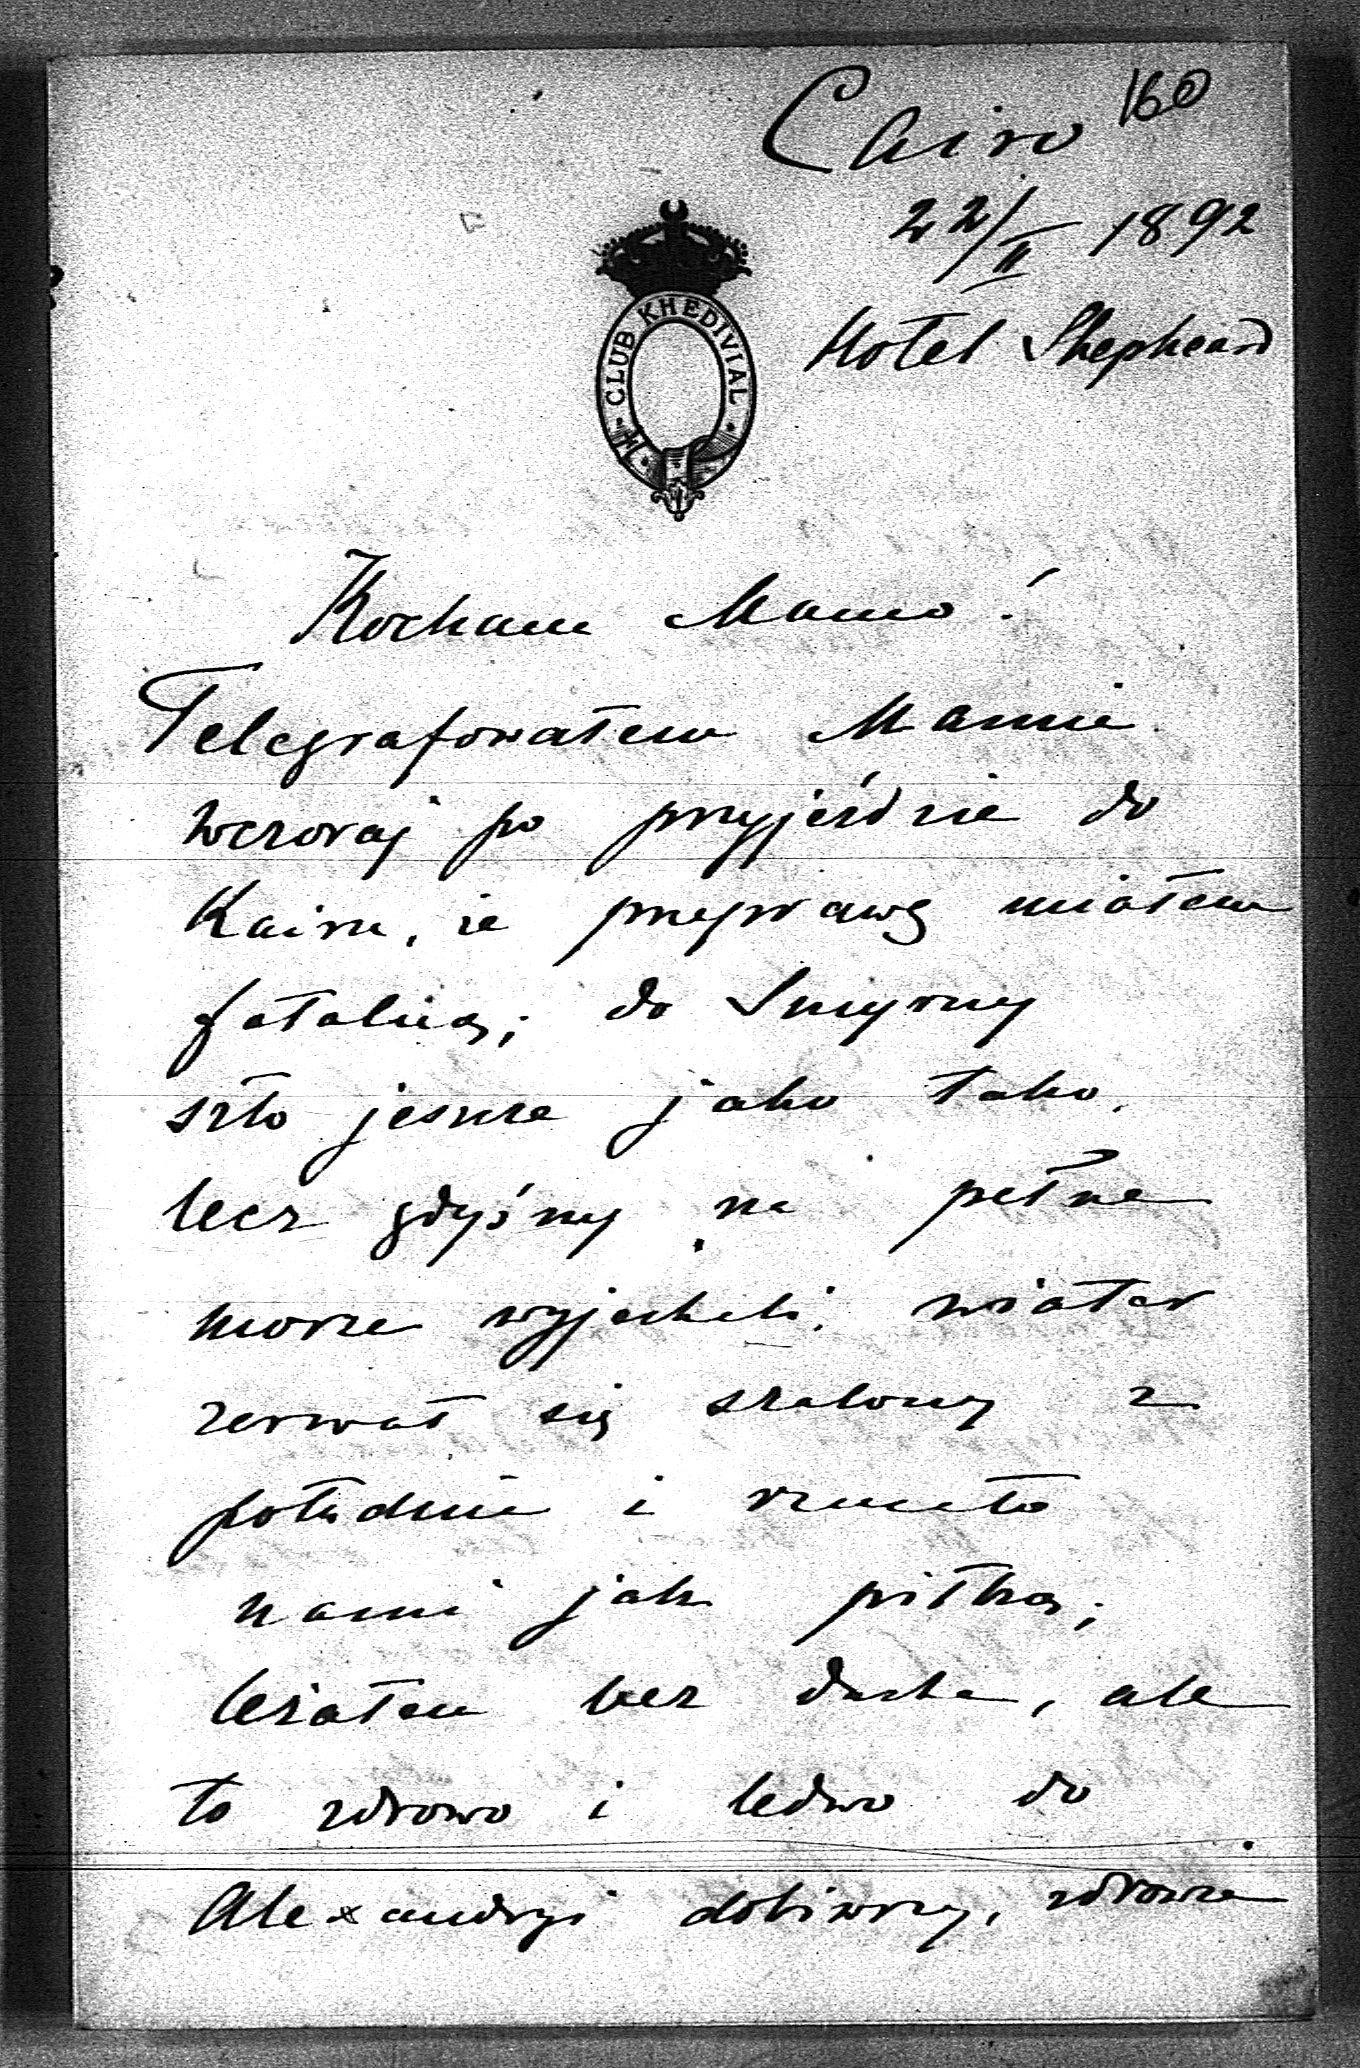 160
Cairo
22/II 1892
Hotel Shepheard
CLUB KHEDIVIAL
Kochana Mamo!
Telegrafowałem Mamie
wczoraj po przyjeździe do
Kairu, że przeprawę miałem
fatalną; do Smyrny
szło jeszcze jako tako,
lecz gdyśmy na pełne
morze wyjechali, wiatar
zerwał się szalony z
południa i rzucało
nami jak piłką;
leżałem bez ducha, ale
to zdrowo i ledwo do
Alexandryi dobiwszy, zdrowie